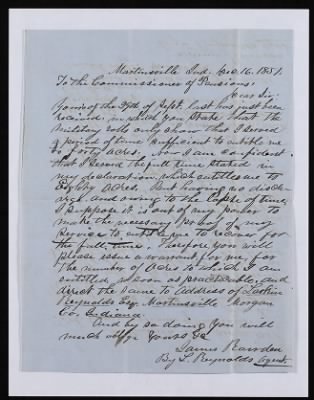 Martinsville Ind. Dec 16. 1851.
To the Commissioner of Pensions:
Dear Sir
Yours of the 29th of Sept. last has just been
received in which you state that the
Military rolls only show that I served
a period of time sufficient to entitle me
to forty acres. Now I am confident
that I served the full time stated in
my declaration, which entitles me to
Eighty acres. But having no disch-
arge, and owing to the lapse of time,
I suppose it is out of my power to
make the necessary proof of my
service to entitle me to recover for
the full time. Therefore you will
please issue a warrant for me, for
the number of acres to which I am
entitled, as soon as practicable, and
direct the same to address of
Reynolds Esq. Martinsville Morgan
Co. Indiana.
And by so doing you will
much oblige Yours &c
James
By L. Reynolds, Agent.